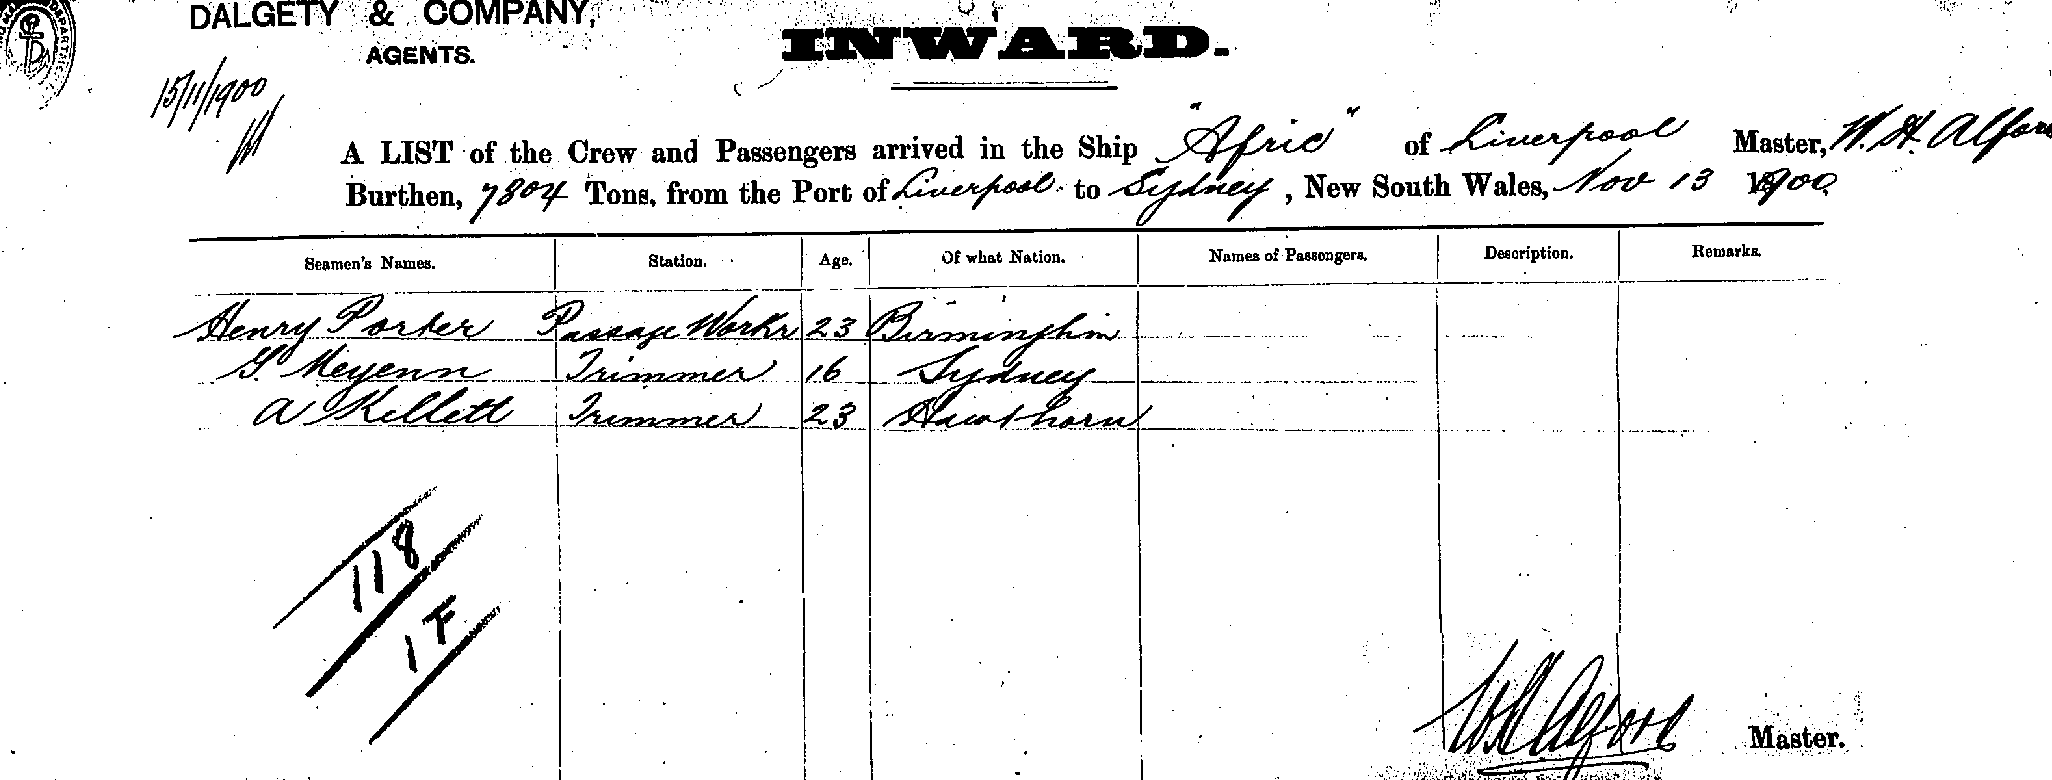 DALGETY & COMPANY,
AGENTS.
INWARD.
15/11/1900
A LIST of the Crew and Passengers arrived in the Ship "Afric" of Liverpool Master, W. H. Alford
Burthen, 7804 Tons, from the Port of Liverpool to Sydney, New South Wales, Nov 13 1900
Seamen's Names. Station. Age. Of what Nation. Names of Passengers. Description. Remarks.
Henry Porter Passage Workr 23 Birminghm
G. Meyenn Trimmer 16 Sydney
A Kellett Trimmer 23 Hawthorn
118
1 F
W H Alford Master.